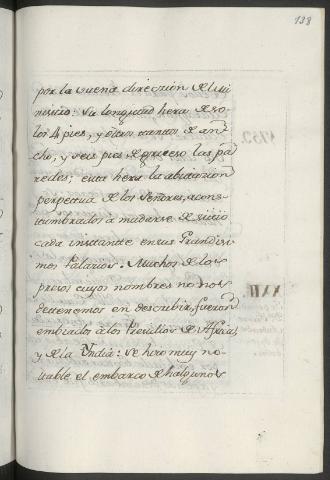 138
por la buena direccion de el Mi
nisterio: su longitud hera de so
los 4 pies, y otros tantos de an
cho, y seis pies de grueso las pa
redes; esta hera la abitacion
perpetua de los Señores, acos
tumbrados a mudarse de sitio
cada instante en sus Grandisi
mos Palacios. Muchos de los
presos cuyos nombres no nos
detenemos en describir, fueron
embiados a los Presidios de Africa,
y de la Yndia: se hizo muy no
table el embarco de halgunos